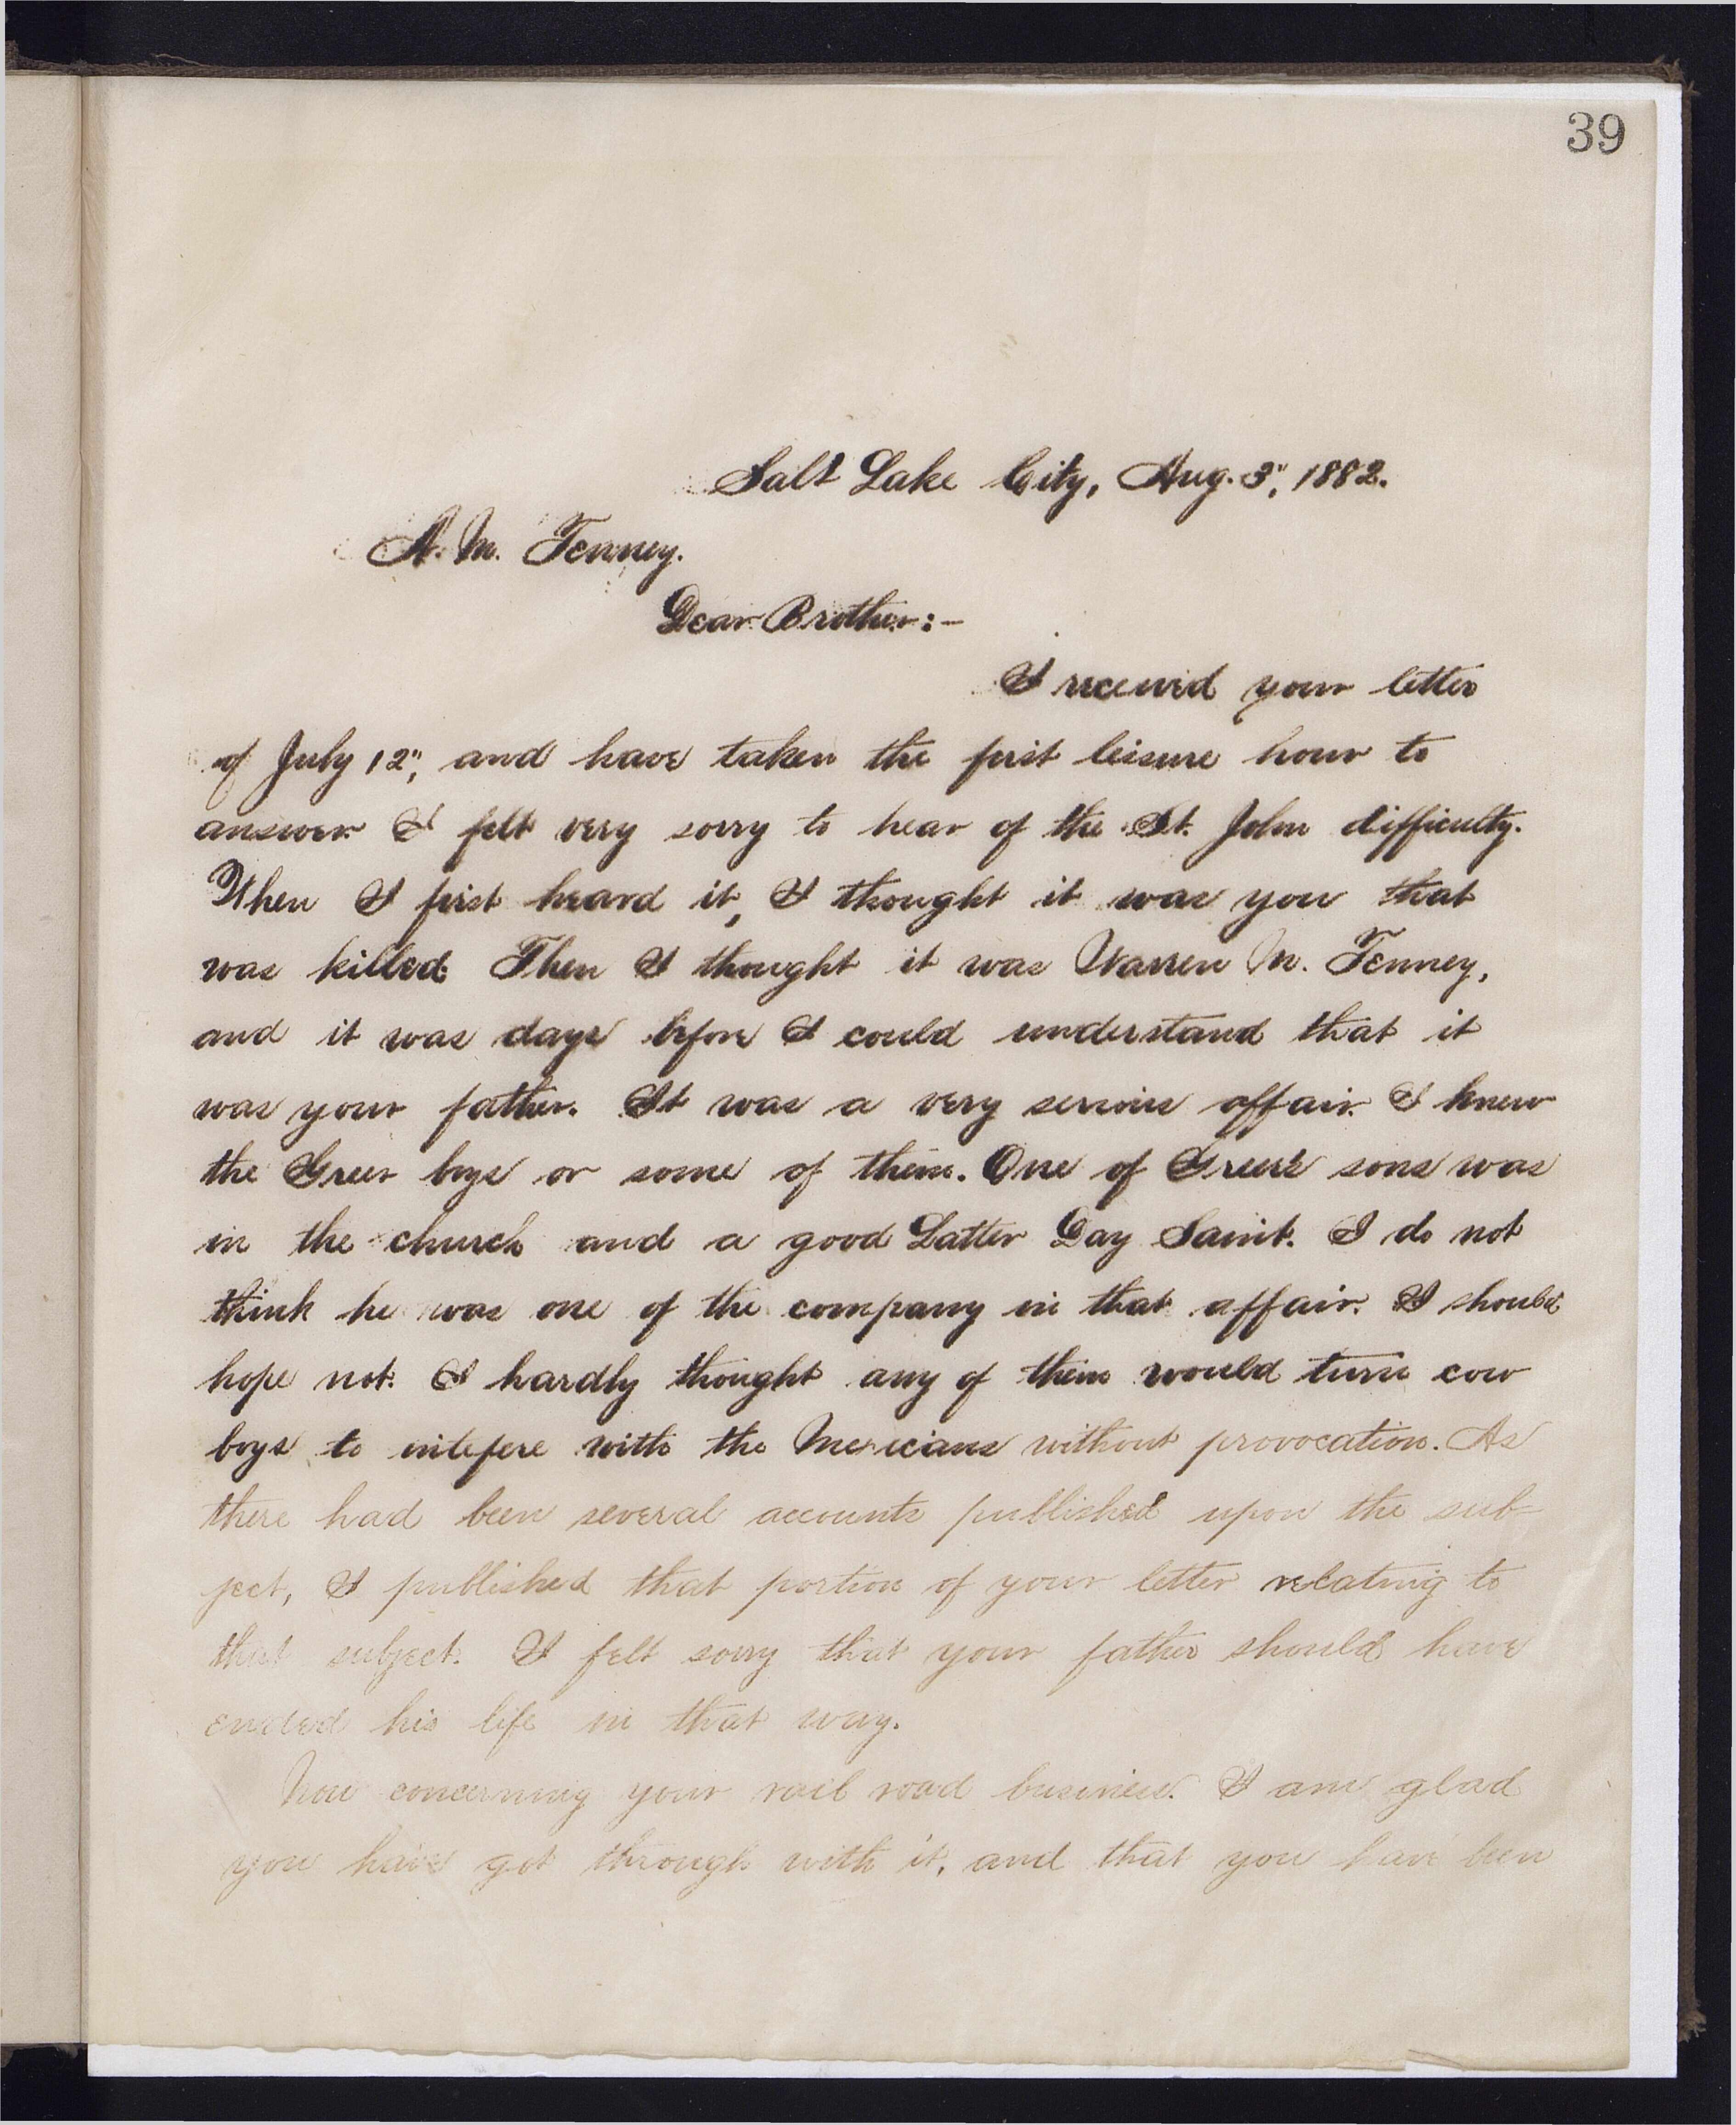 39
Salt Lake City, Aug. 3", 1882.
A. M. Tenney.
Dear Brother:-
I received your letter
of July 12", and have taken the first leisure hour to
answer. I felt very sorry to hear of the St. John difficulty.
When I first heard it, I thought it was you that
was killed. Then I thought it was Warren M. Tenney,
and it was days before I could understand that it
was your father. It was a very serious affair. I knew
the Greer boys or some of them. One of Greer's sons was
in the church and a good Latter Day Saint. I do not
think he was one of the company in that affair. I should
hope not. I hardly thought any of them would turn cow
boys to intefere with the Mexicans without provocation. As
there had been several accounts published upon the sub-
ject, I published that portion of your letter relating to
that subject. I felt sorry that your father should have
ended his life in that way.
Now concerning your rail road business. I am glad
you have got through with it, and that you have been